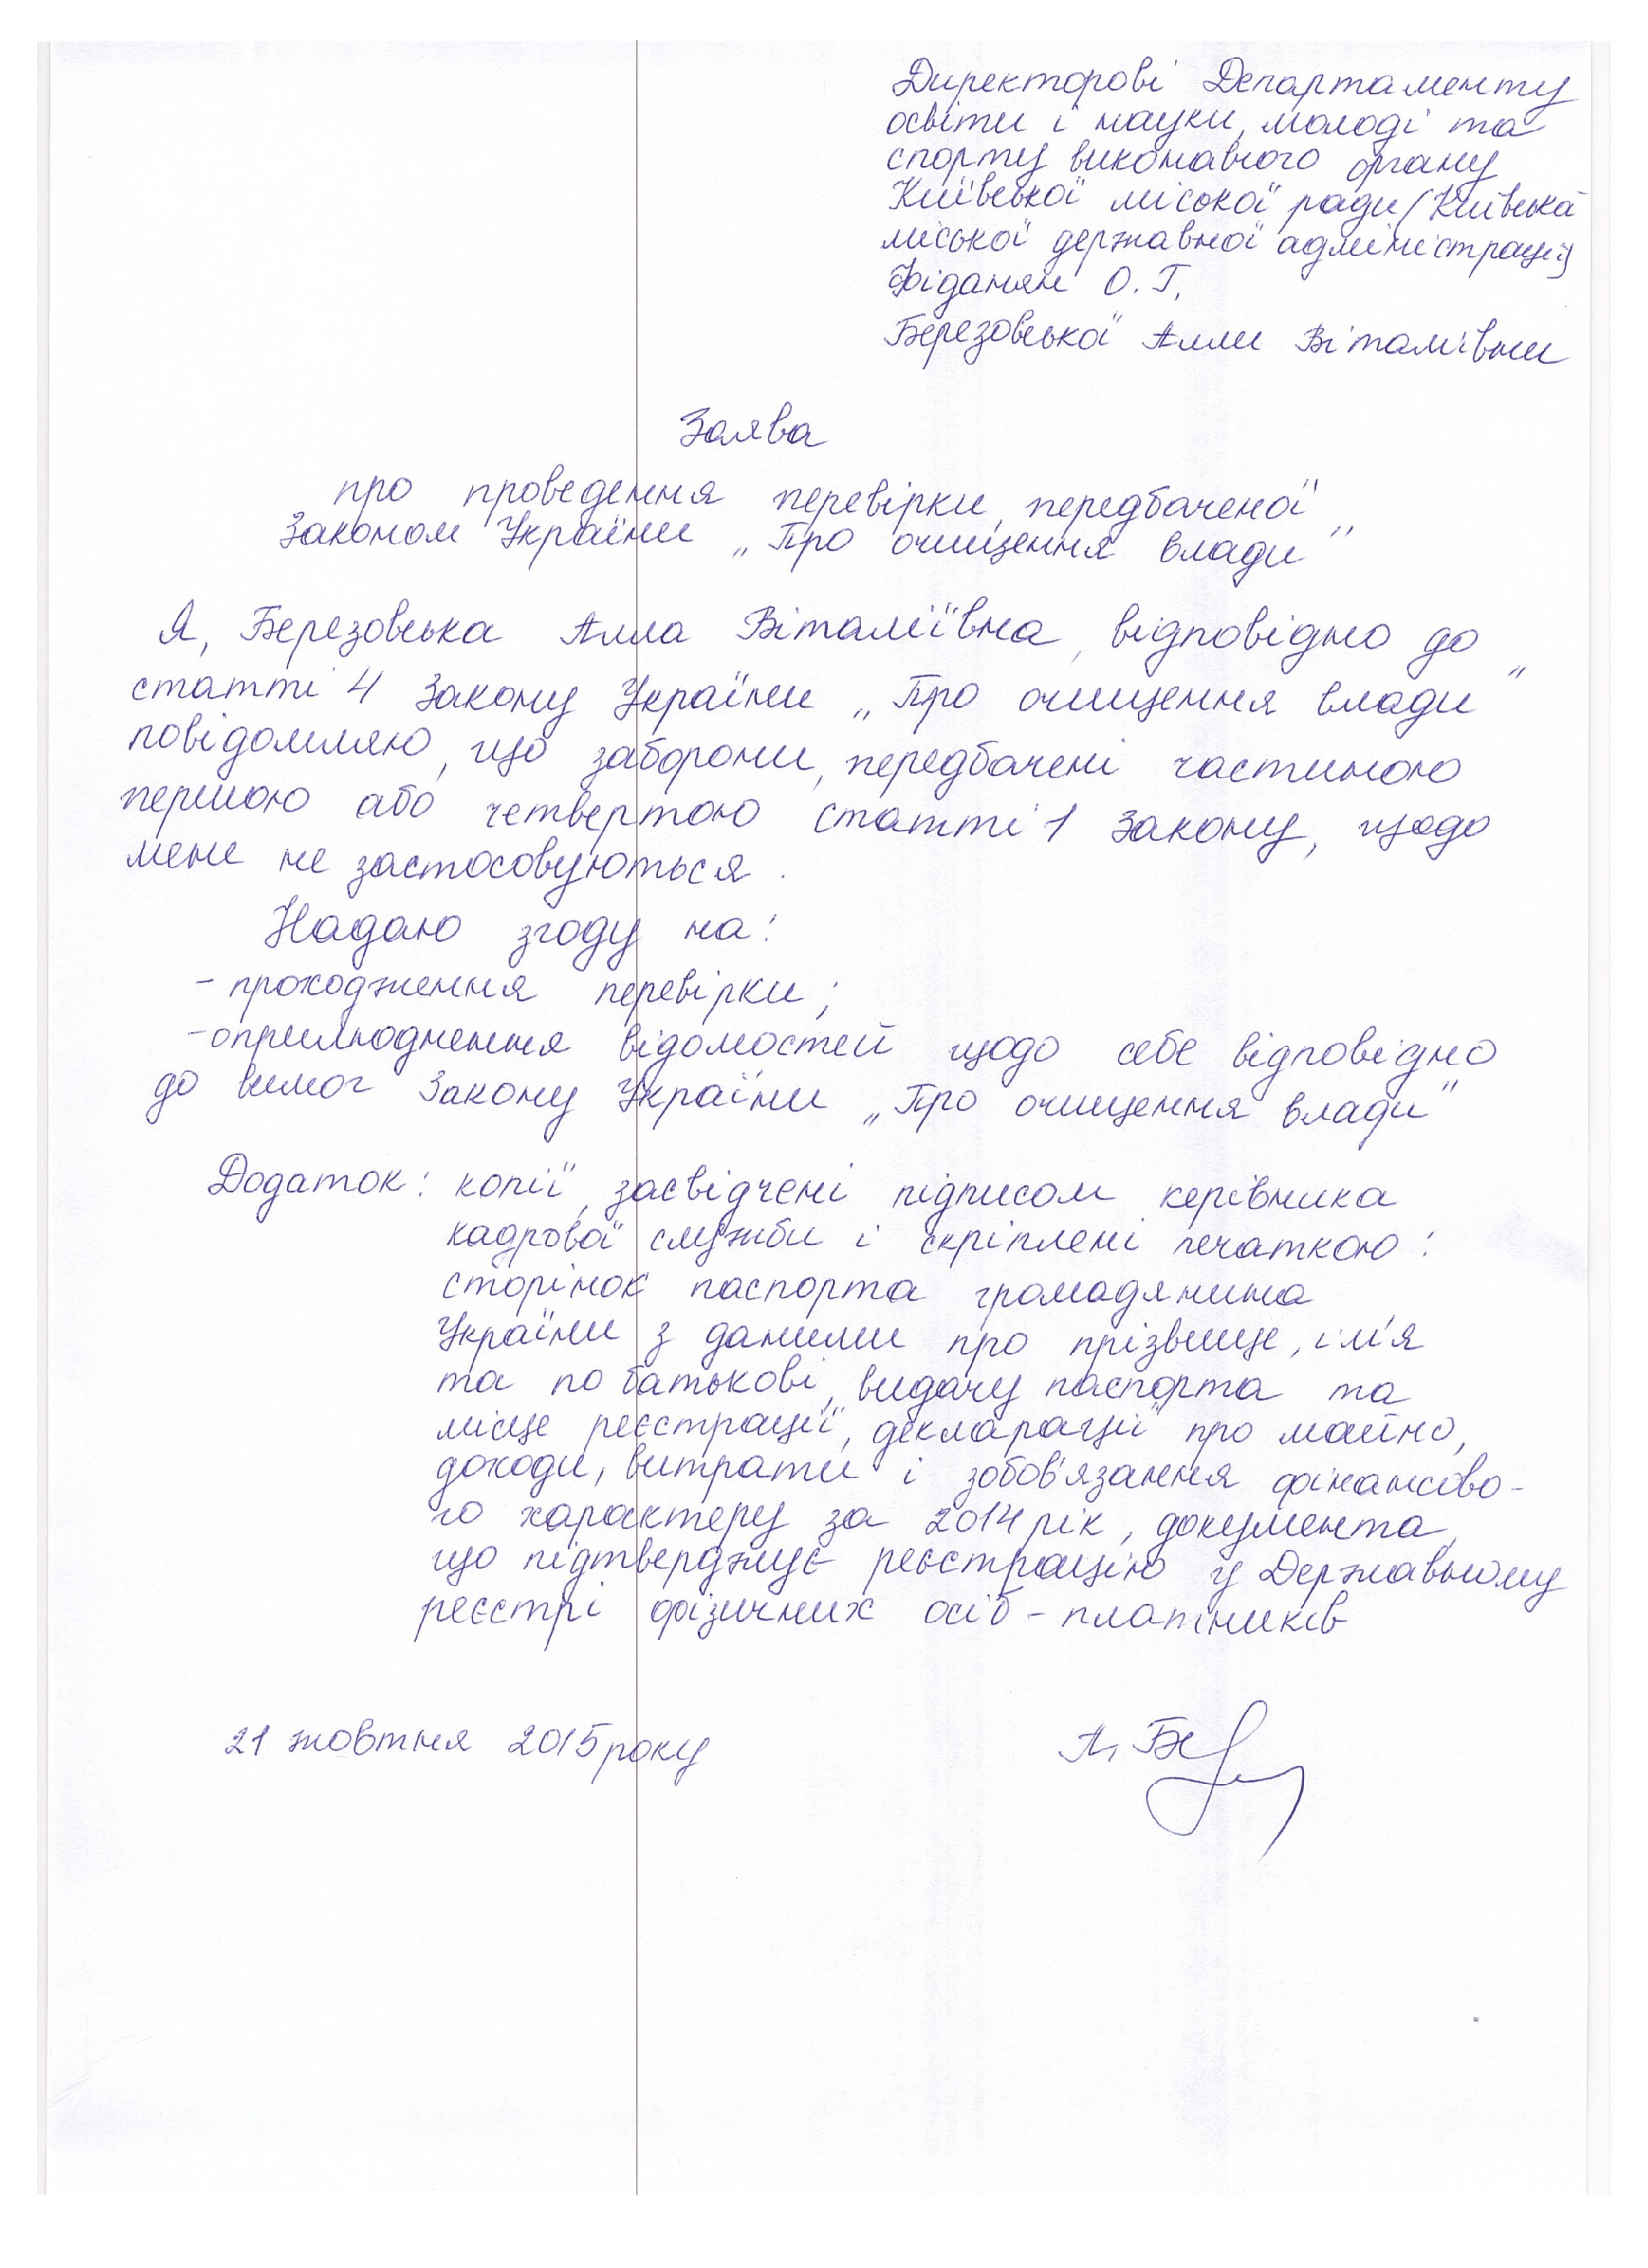 Директорові Департаменту
освіти і науки, молоді та
спорту виконавчого органу
Київської міської ради (Київська
міської державної адміністрації)
Фіданян О. Г.
Березовської Алли Віталіївни
Заява
про проведення перевірки, передбаченої
Законом України „Про очищення влади"
Я, Березовська Алла Віталіївна, відповідно до
статті 4 Закону України „Про очищення влади"
повідомляю, що заборони, передбачені частиною
першою або четвертою статті 1 Закону, щодо
мене не застосовуються.
Надаю згоду на:
- проходження перевірки;
- оприлюднення відомостей щодо себе відповідно
до вимог Закону України „Про очищення влади"
Додаток: копії, засвідчені підписом керівника
кадрової служби і скріплені печаткою:
сторінок паспорта громадянина
України з даними про прізвище, ім'я
та по батькові, видачу паспорта та
місце реєстрації, декларації про майно,
доходи, витрати і зобов'язання фінансово-
го характеру за 2014 рік, документа,
що підтверджує реєстрацію у Державному
реєстрі фізичних осіб - платників
21 жовтня 2015 року
А. Бе